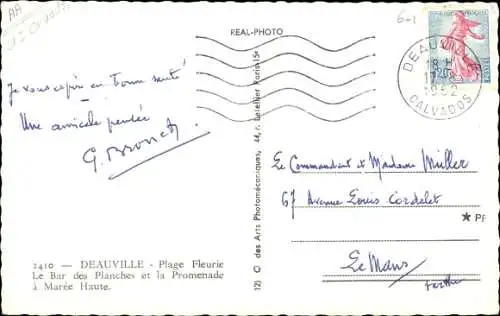 AA
REAL-PHOTO
DEAUVILLE
18 H
CALVADOS
Je vous espère en bonne santé
Une amicale pensée
G.
2410 — DEAUVILLE - Plage Fleurie
Le Bar des Planches et la Promenade
à Marée Haute.
des Arts Photomécaniques, 44, r. Letellier Paris 15e
Le Commandant et Madame Muller
67 Avenue Louis Cordelet
Le Mans
Sarthe